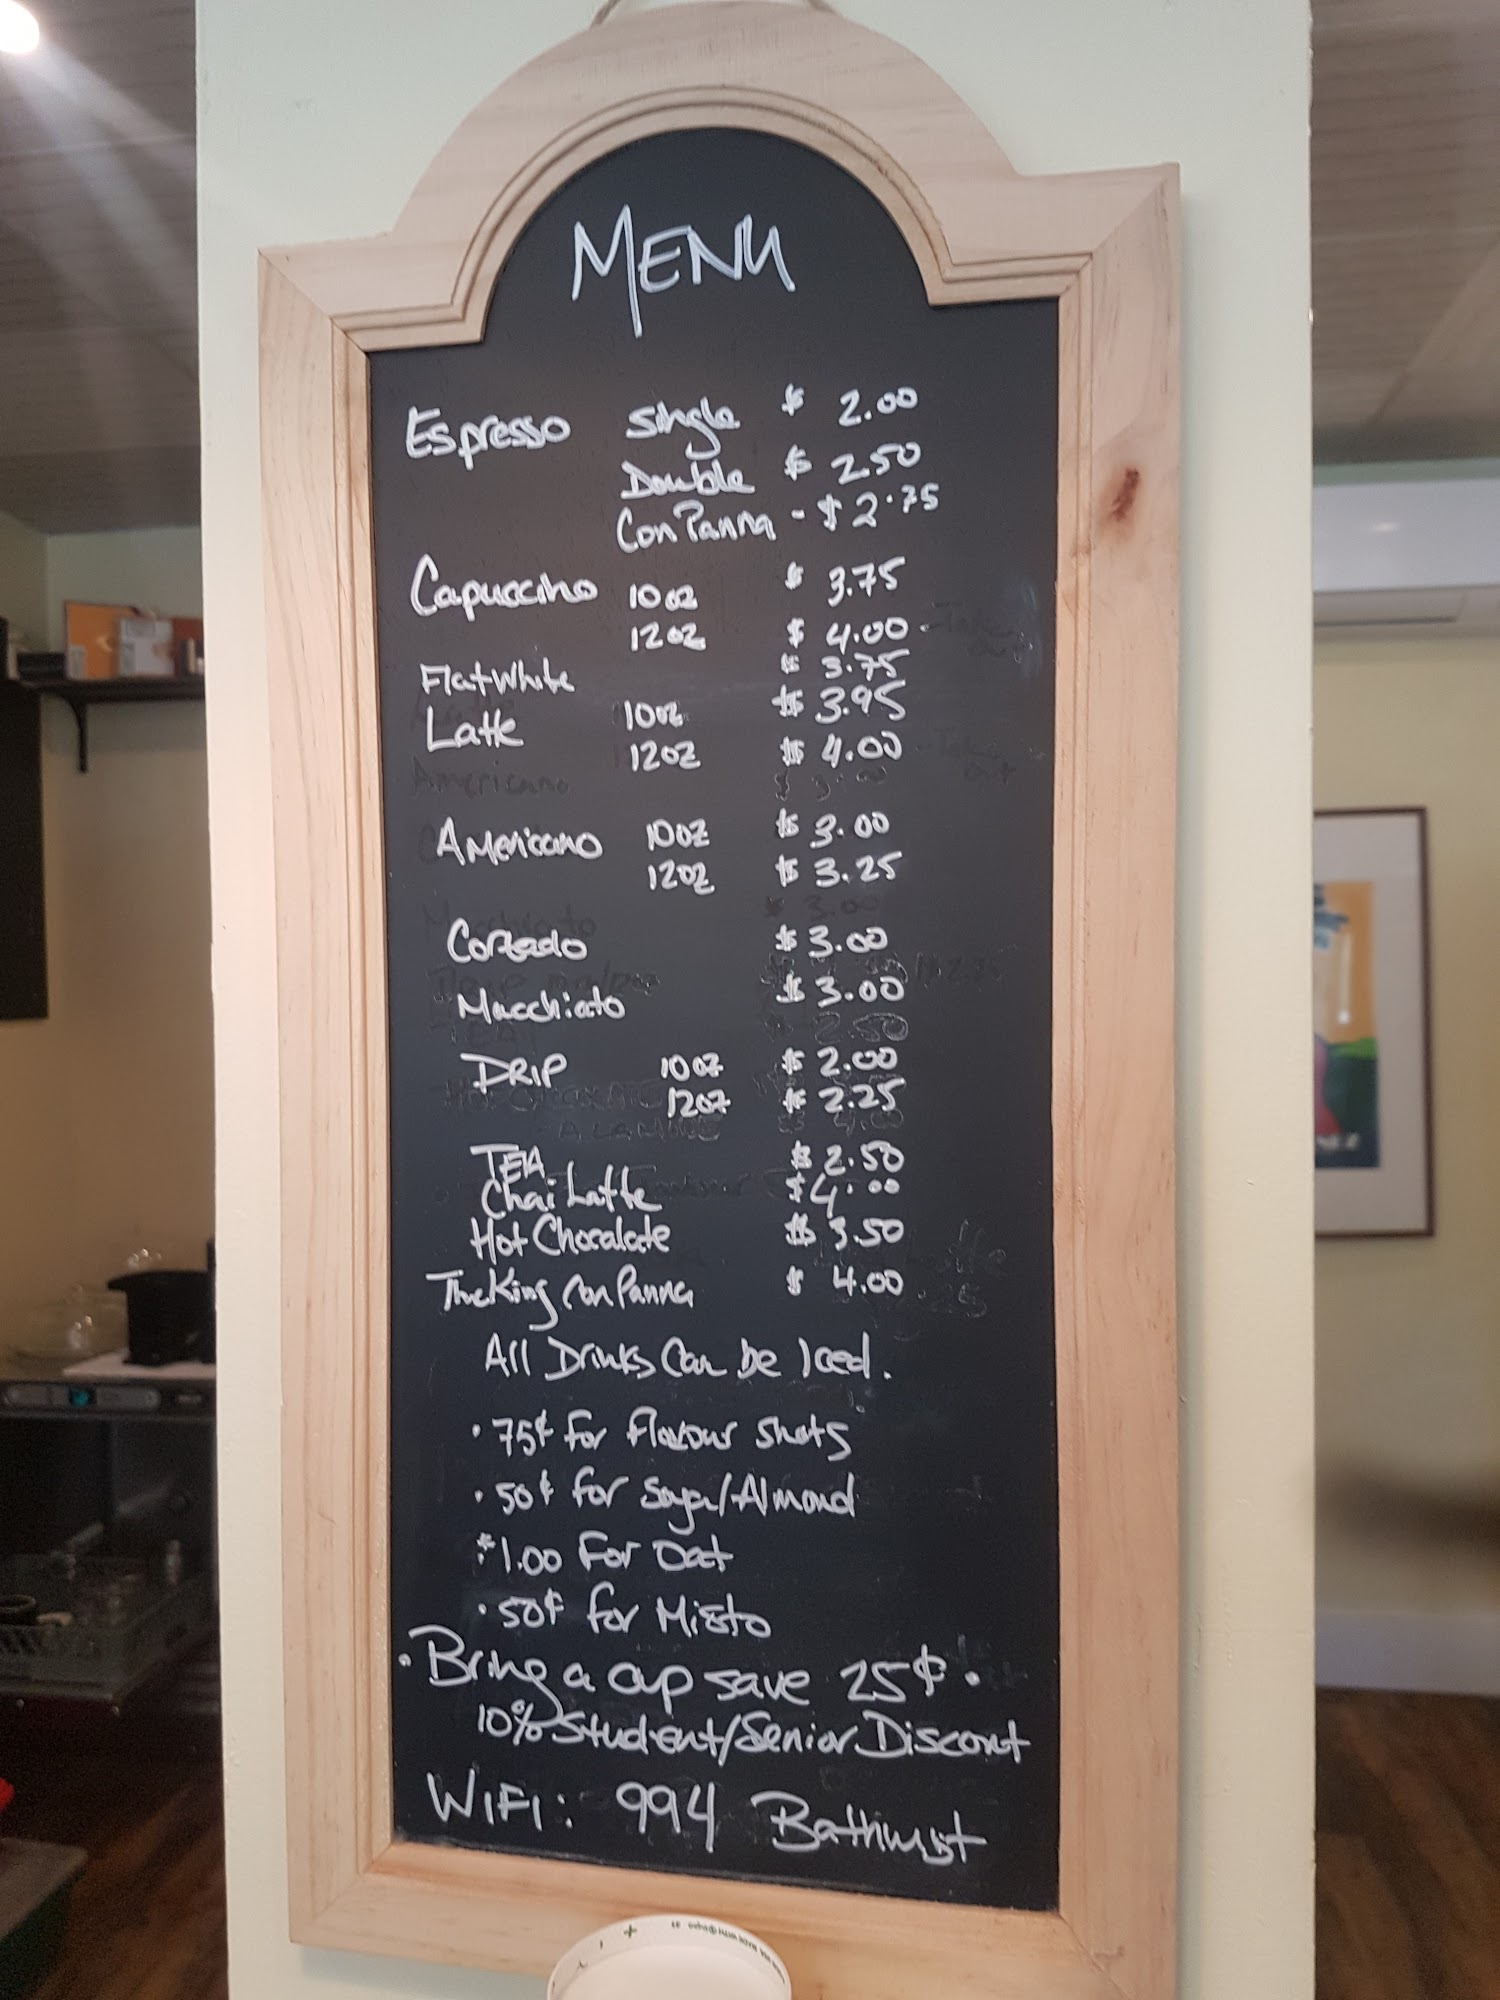 MENU
Espresso Single $ 2.00
Double $ 2.50
Con Panna - $ 2.75
Capuccino 10oz $ 3.75
12oz $ 4.00
Flat White $ 3.75
Latte 10oz $ 3.95
12oz $ 4.00
Americano 10oz $ 3.00
12oz $ 3.25
Cortado $ 3.00
Macchiato $ 3.00
DRIP 10oz $ 2.00
12oz $ 2.25
TEA $ 2.50
Chai Latte $ 4.00
Hot Chocolate $ 3.50
The King Con Panna $ 4.00
All Drinks Can be Iced.
• 75¢ for Flavour Shots
• 50¢ for Soya/Almond
$1.00 For Oat
• 50¢ for Misto
• Bring a cup save 25¢ •
10% Student/Senior Discont
WIFI: 994 Bathurst